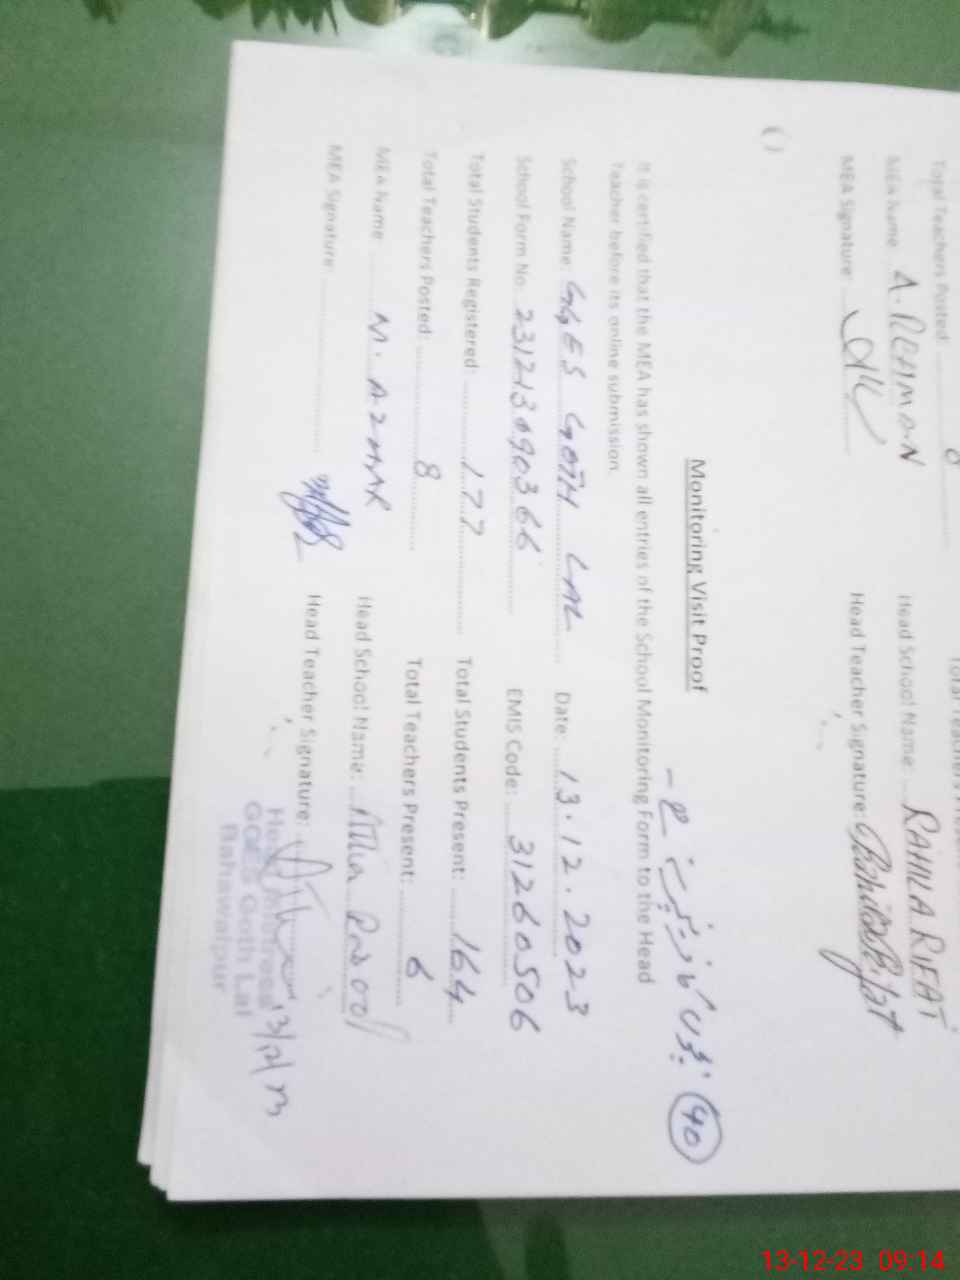 Total Teachers Posted: 8
MEA Name: A. REHMAN Head School Name: RAHILA RIFAT
MEA Signature: Head Teacher Signature: Rahila Rifat
Monitoring Visit Proof 40
It is certified that the MEA has shown all entries of the School Monitoring Form to the Head
Teacher before its online submission.
School Name: GGES GOTH LAL Date: 13.12.2023
School Form No: EMIS Code: 31260506
Total Students Registered: 177 Total Students Present: 164
Total Teachers Posted: 8 Total Teachers Present: 6
MEA Name: M. AZHAR Head School Name: Attia Rasool
MEA Signature: Head Teacher Signature: 13/12/23
Head Mistress
GGES Goth Lal
Bahawalpur
13-12-23 09:14